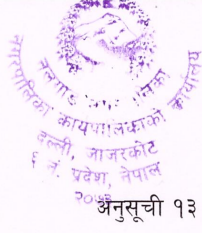 नगरपालिका कार्यपालिकाको कार्यालय
दल्ली, जाजरकोट
६ नं. प्रदेश, नेपाल
२०७३
अनुसूची १३